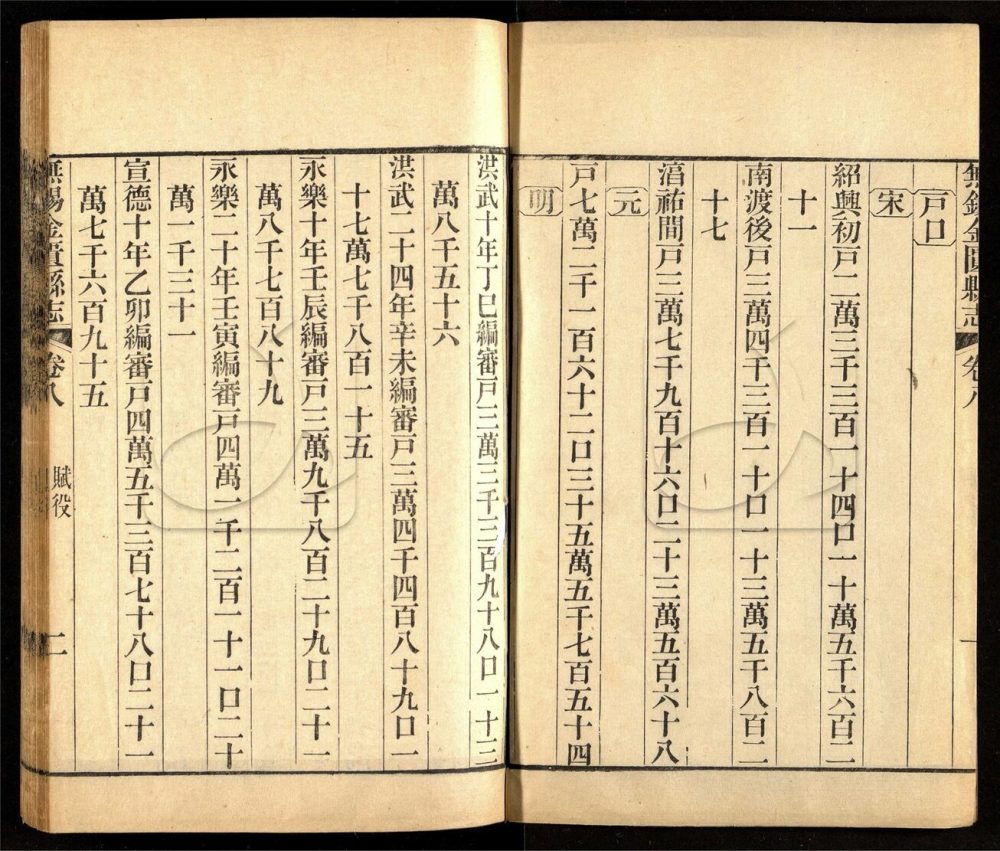 無錫金匱縣志 卷八 一
戸口
宋
紹興初戸二萬三千三百一十四口一十萬五千六百二
十一
南渡後戸三萬四千三百一十口一十三萬五千八百二
十七
湻祐間戸三萬七千九百十六口二十三萬五百六十八
元
戸七萬二千一百六十二口三十五萬五千七百五十四
明
洪武十年丁巳編審戸三萬三千三百九十八口一十三
萬八千五十六
洪武二十四年辛未編審戸三萬四千四百八十九口一
十七萬七千八百一十五
永樂十年壬辰編審戸三萬九千八百二十九口二十一
萬八千七百八十九
永樂二十年壬寅編審戸四萬一千二百一十一口二十
萬一千三十一
宣德十年乙卯編審戸四萬五千三百七十八口二十一
萬七千六百九十五
無錫金匱縣志 卷八 賦役 二